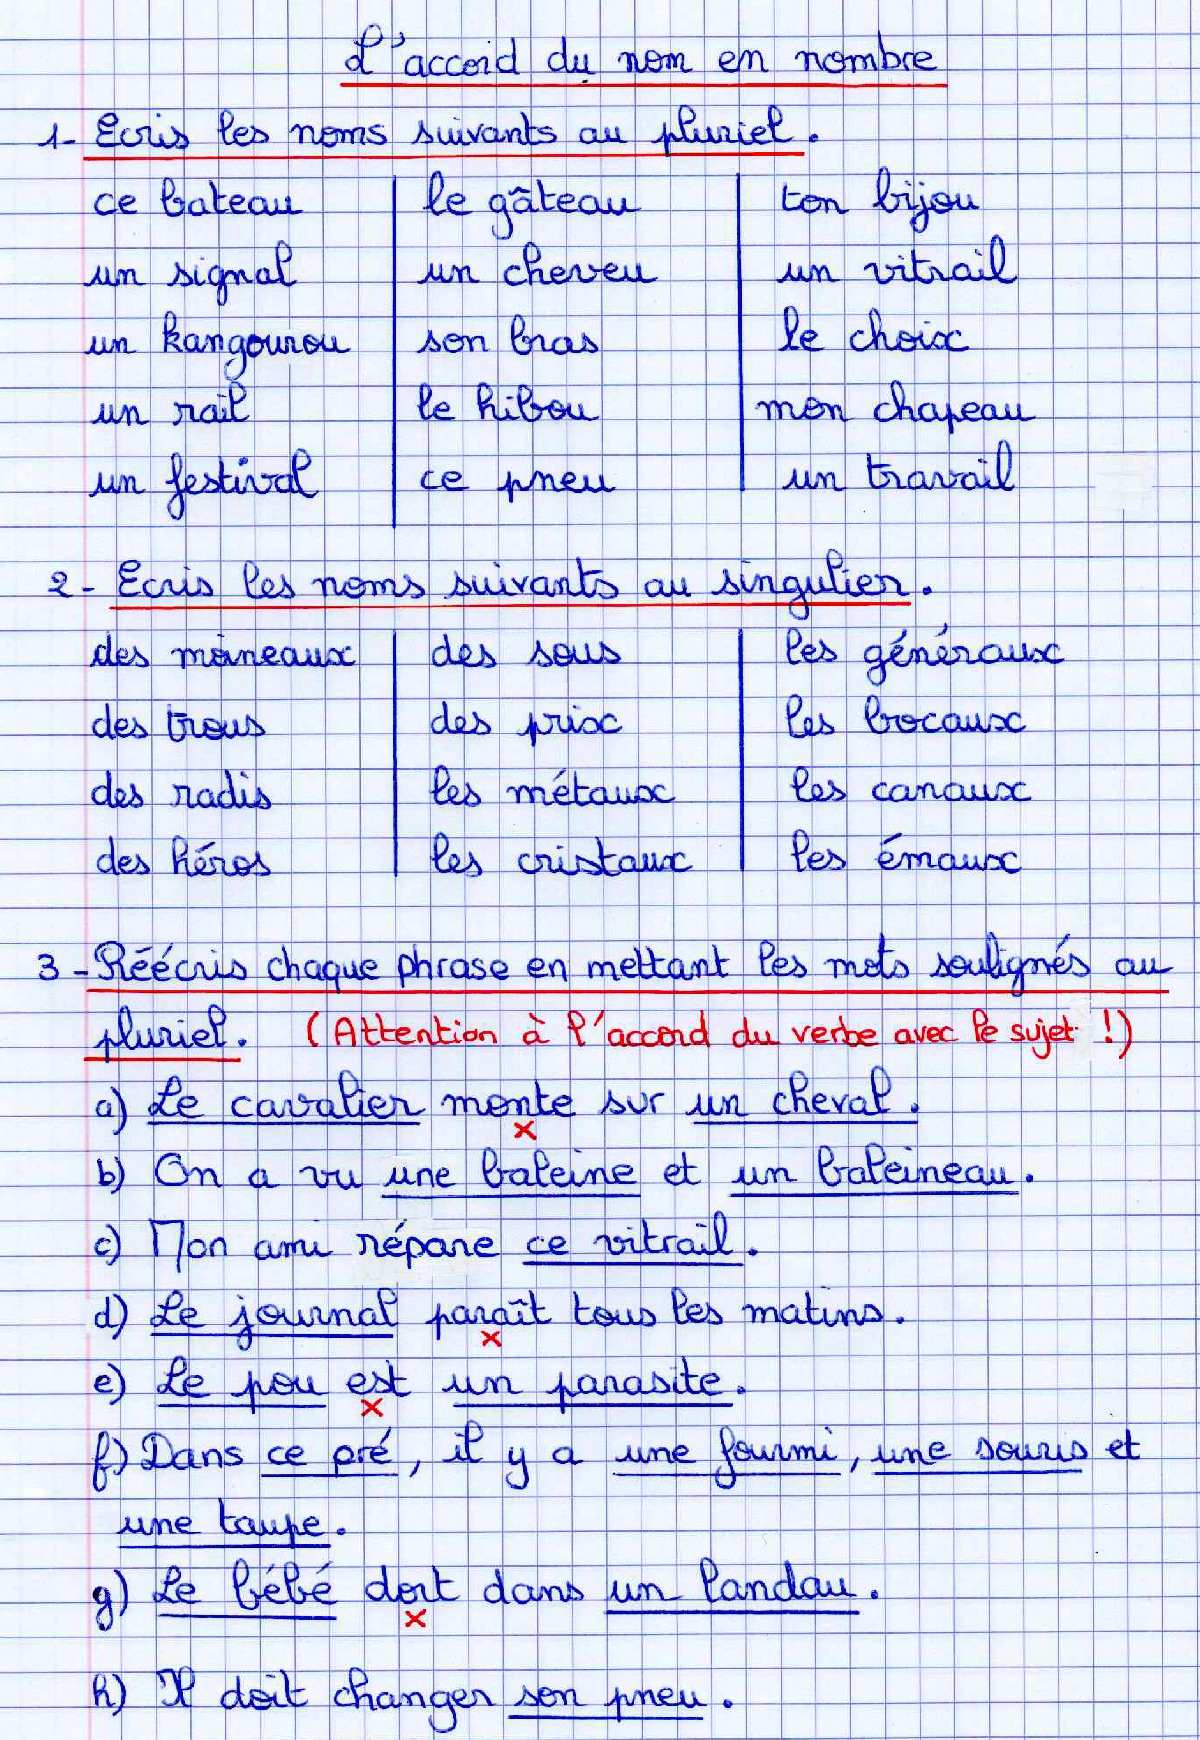 L'accord du nom en nombre
1- Ecris les noms suivants au pluriel.
ce bateau le gâteau ton bijou
un signal un cheveu un vitrail
un kangourou son bras le choix
un rail le hibou mon chapeau
un festival ce pneu un travail
2- Ecris les noms suivants au singulier.
des moineaux des sous les généraux
des trous des prix les bocaux
des radis les métaux les canaux
des héros les cristaux les émaux
3- Réécris chaque phrase en mettant les mots soulignés au
pluriel. (Attention à l'accord du verbe avec le sujet !)
a) Le cavalier monte sur un cheval.
x
b) On a vu une baleine et un baleineau.
c) Mon ami répare ce vitrail.
d) Le journal paraît tous les matins.
x
e) Le pou est un parasite.
x
f) Dans ce pré, il y a une fourmi, une souris et
une taupe.
g) Le bébé dort dans un landau.
x
h) Il doit changer son pneu.